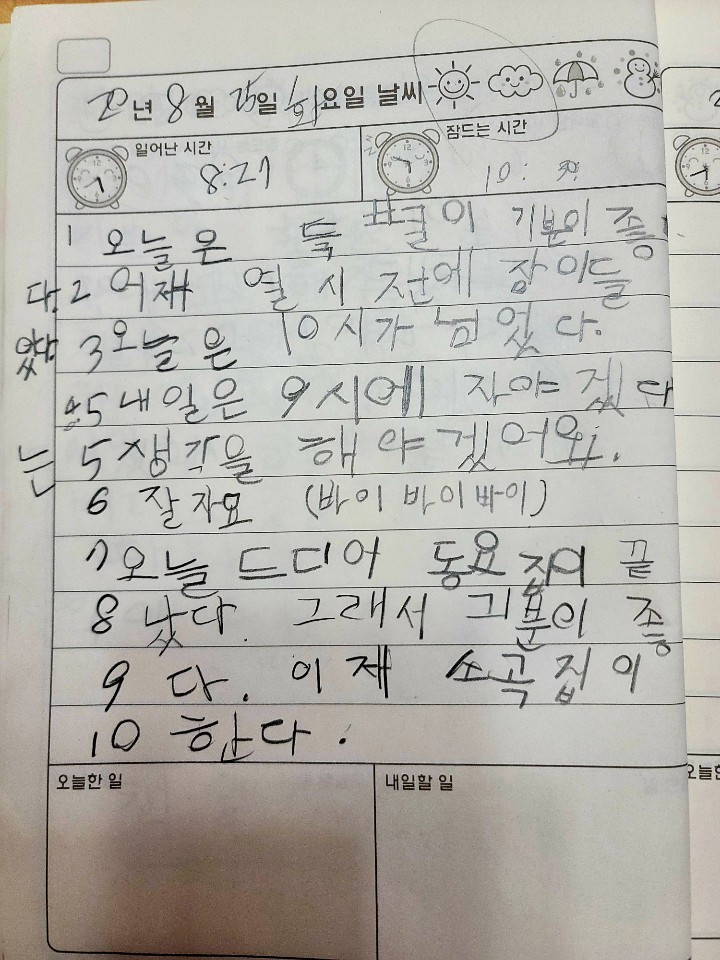 년 8월 25일 화요일 날씨
일어난 시간
8:21
잠드는 시간
10:30
1 오늘은 특별이 기분이 좋
다. 2 어재 열 시 전에 잠이들
었 3 오늘은 10시가 넘었다.
5 내일은 9시에 자야겠다
는 5 생각을 해야겠어요.
6 잘자요 (바이 바이 빠이)
7 오늘 드디어 동요집이 끝
8 났다. 그래서 기분이 좋
9 다. 이재 소곡집이
10 한다.
오늘한 일
내일할 일